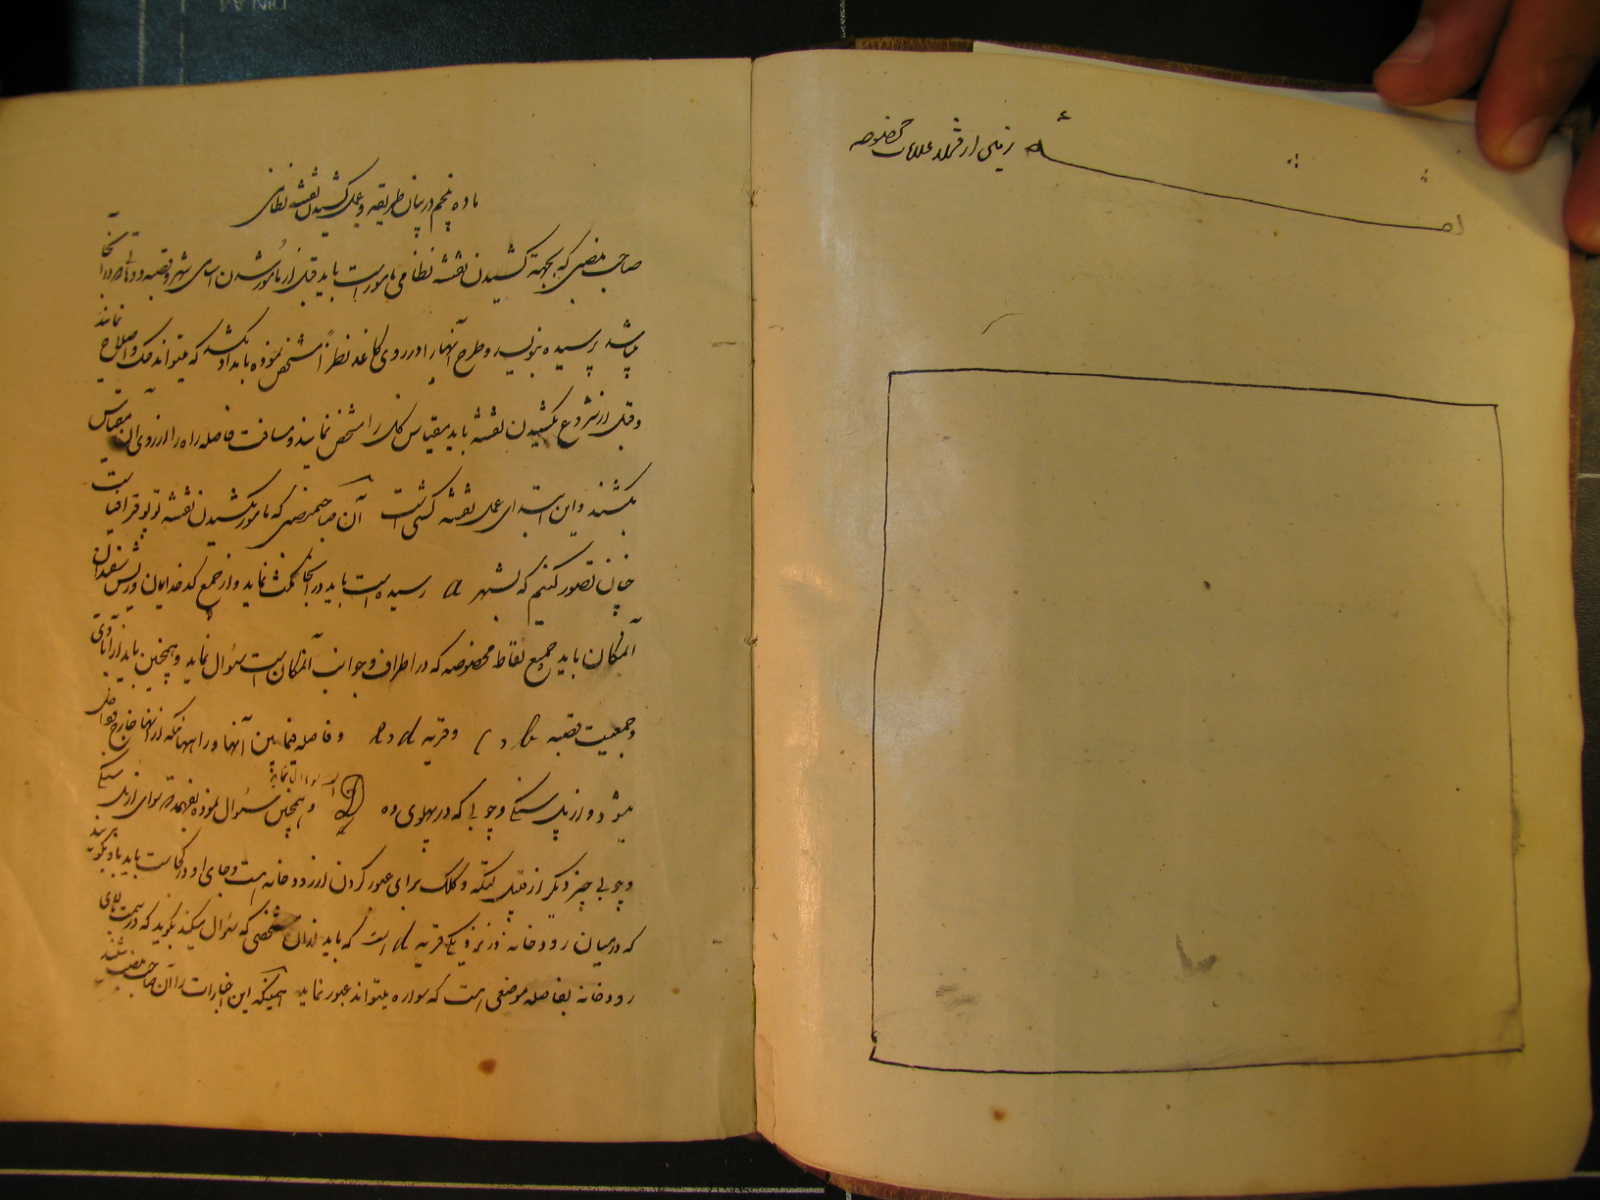 زمینی از قرار علامات مخصوصه
ماده پنجم در بیان طریقه و عمل کشیدن نقشه نظامی
صاحب منصبی که بجهة کشیدن نقشه نظامی مامور است باید قبل از مامور شدن اسامی شهر و قصبه و دهات که در آنجا
میباشد پرسیده بنویسد و طرح آنها را در روی کاغذ نظراً مشخص نموده با مداد بکشد که میتواند حک و اصلاح نمایند
و قبل از شروع بکشیدن نقشه باید مقیاس کل را مشخص نمایند و مسافت فاصله راه را از روی آن مقیاس
بکشند و این ابتدای عمل نقشه کشی است آن صاحبمنصبی که مامور بکشیدن نقشه توپوقرافیا است
چنان تصور کنیم که بشهر a رسیده است باید در آنجا مکث نماید و از جمیع کدخدایان و ریش سفیدان
آنمکان باید جمیع نقاط مخصوصه که در اطراف و جوانب آنمکان است سئوال نماید و همچنین باید از آبادی
و جمعیت قصبه b و c و قریه d و e و فاصله فیمابین آنها و راههائیکه از آنها خارج
میشود و از پل سنگی و چوبی که در پهلوی ده سئوال نماید و همچنین سئوال نموده بفهمد که سوای از پل سنگی
و چوبی چیز دیگر از قبیل لتکه و کلک برای عبور کردن از رودخانه هست و جای او در کجاست باید باو بگویند
که در میان رودخانه در نزدیک قریه d است که باید از آن شخصی که سئوال میکند بگوید که در سمت بالای
رودخانه بفاصله موضعی است که سواره میتواند عبور نماید همینکه این اخبارات را آن صاحب منصب